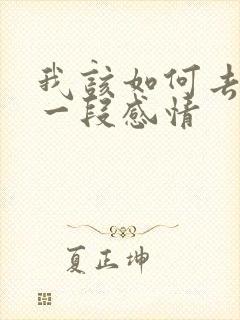 我该如何去
一段感情
夏正坤